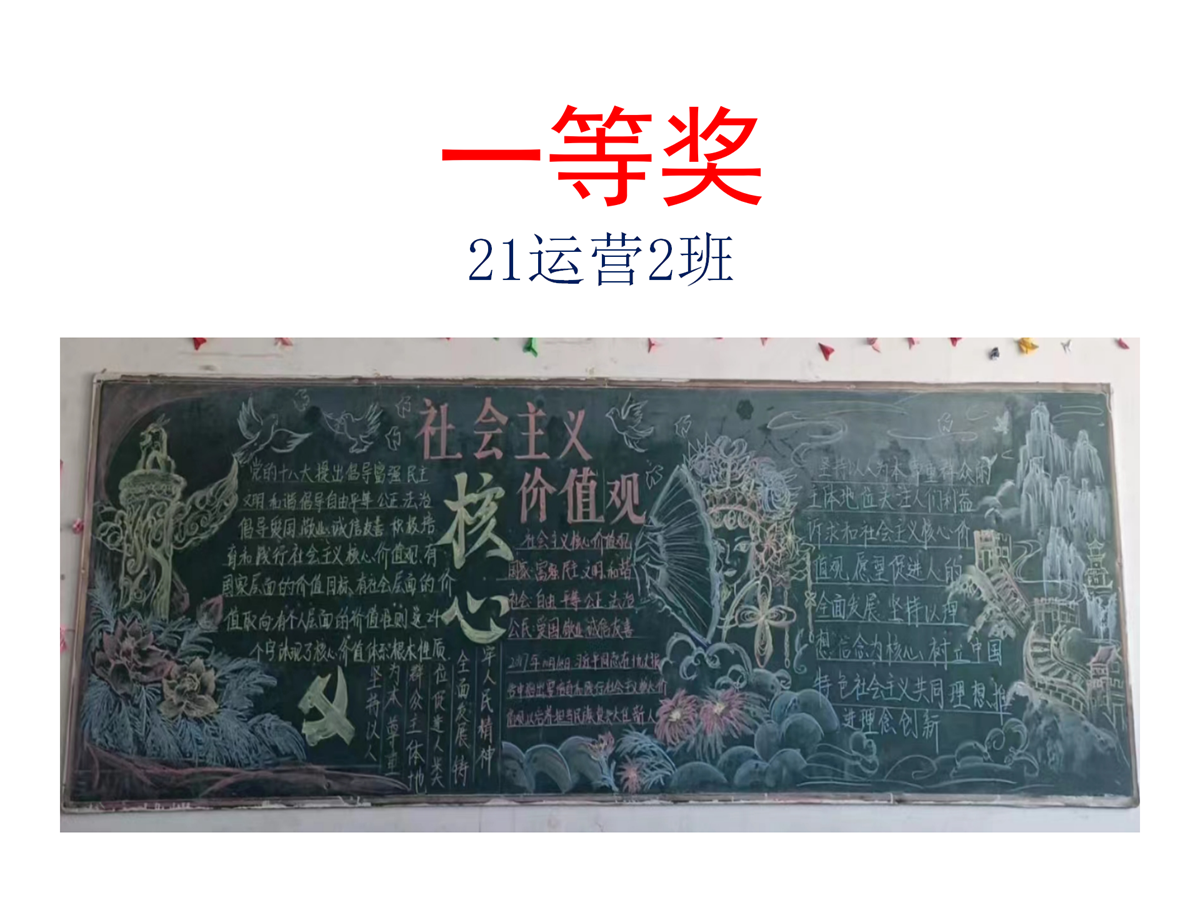 一等奖
21运营2班
社会主义
核心
价值观
党的十八大提出倡导富强民主
文明和谐倡导自由平等公正法治
倡导爱国敬业诚信友善积极培
育和践行社会主义核心价值观,有
国家层面的价值目标,有社会层面的价
值取向有个人层面的价值准则这24
个字体现了核心价值体系根本性质
坚持以人
为本尊重
群众主体地
位促进人类
全面发展铸
牢人民精神
社会主义核心价值观
国家:富强 民主 文明 和谐
社会:自由 平等 公正 法治
公民:爱国 敬业 诚信 友善
2017年10月18日 习近平同志在十九大报
坚持以人为本尊重群众的
主体地位关注人们利益
诉求和社会主义核心价
值观愿望促进人的
全面发展,坚持以理
想信念为核心,树立中国
特色社会主义共同理想,推
进理念创新